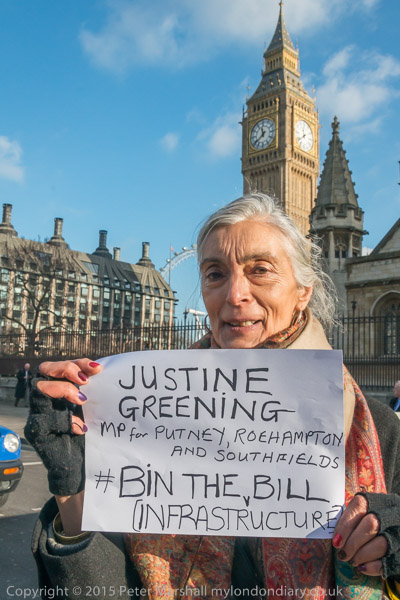 JUSTINE
GREENING
MP for PUTNEY, ROEHAMPTON
AND SOUTHFIELDS
# BIN THE, BILL
(INFRASTRUCTURE
Copyright © 2015 Peter Marshall mylondondiary.co.uk